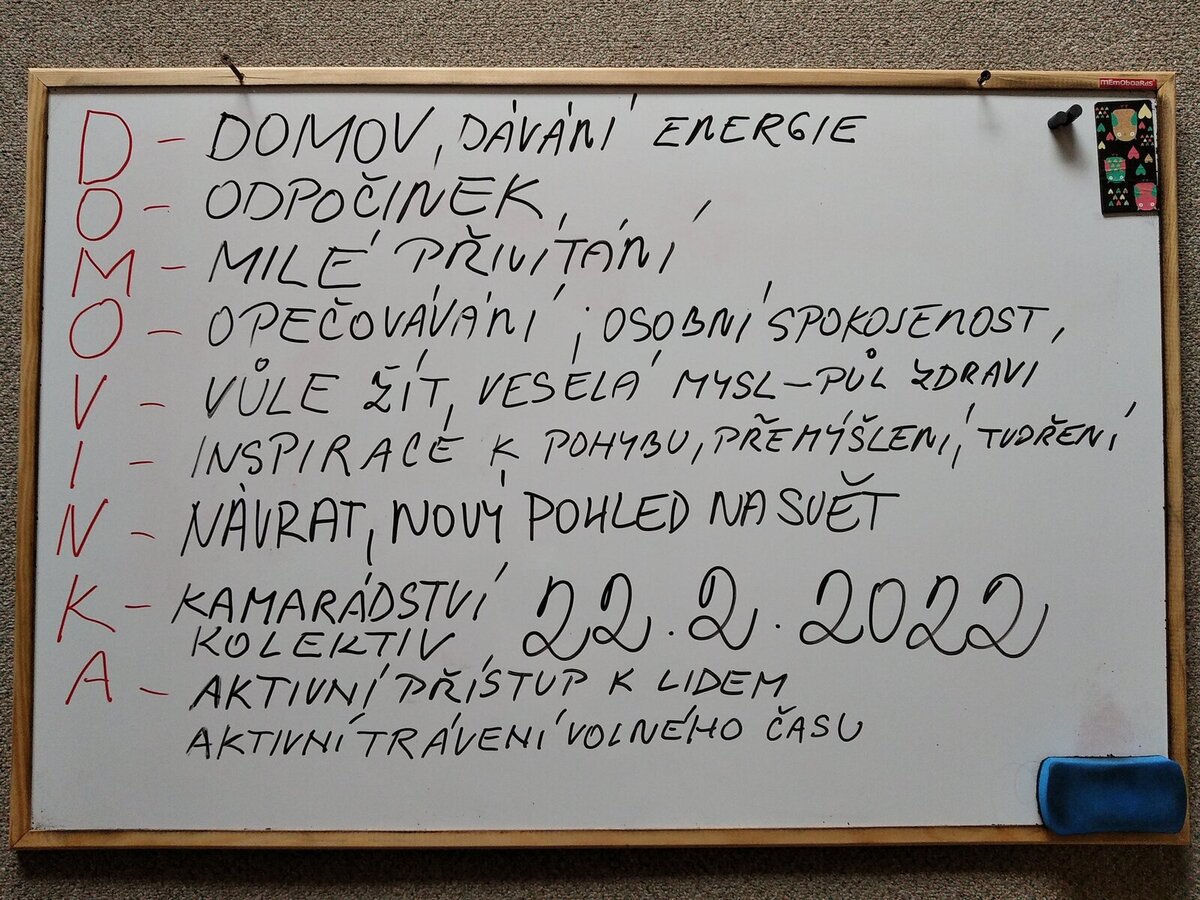 mEmOboaRdS
D - DOMOV, DÁVÁNÍ ENERGIE
O - ODPOČINEK,
M - MILÉ PŘIVÍTÁNÍ
O - OPEČOVÁVÁNÍ, OSOBNÍ SPOKOJENOST,
V - VŮLE ŽÍT, VESELÁ MYSL - PŮL ZDRAVÍ
I - INSPIRACE K POHYBU, PŘEMÝŠLENÍ, TVOŘENÍ
N - NÁVRAT, NOVÝ POHLED NA SVĚT
K - KAMARÁDSTVÍ
KOLEKTIV, 22.2.2022
A - AKTIVNÍ PŘÍSTUP K LIDEM
AKTIVNÍ TRÁVENÍ VOLNÉHO ČASU